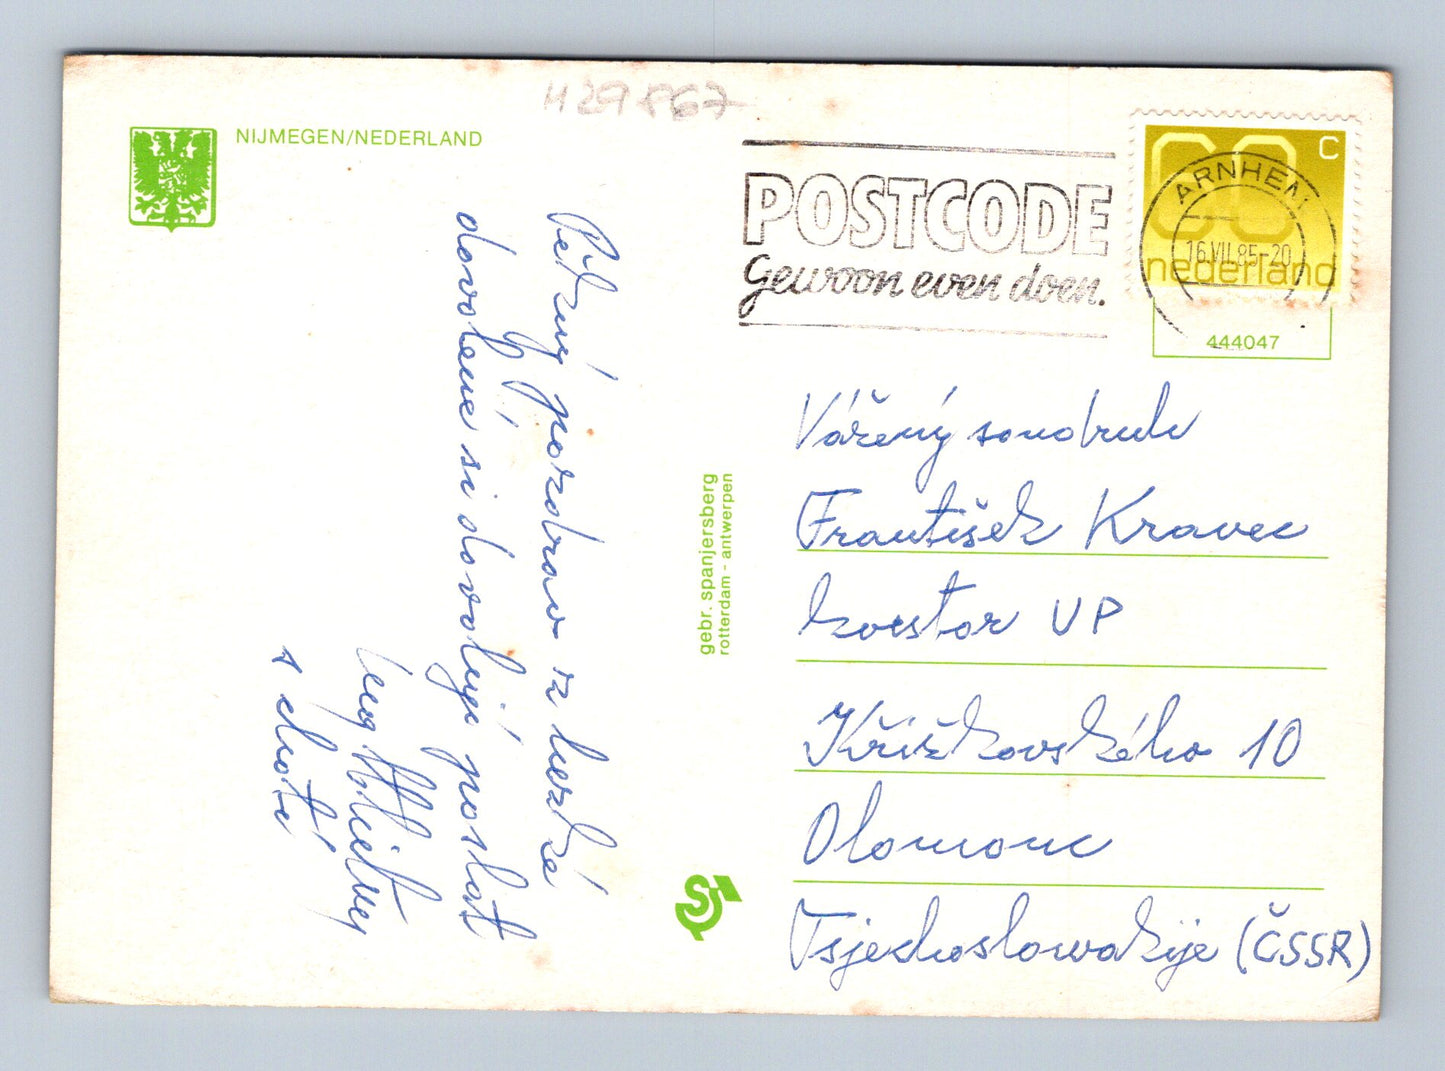 H29867
NIJMEGEN/NEDERLAND
POSTCODE
Gewoon even doen.
60 C
nederland
ARNHEM
16.VII.85-20
444047
Pěkný pozdrav z hezké
dovolené si dovoluji poslat
s chotí
gebr. spanjersberg
rotterdam - antwerpen
Vážený soudruh
František Kravec
kvestor UP
Křížkovského 10
Olomouc
Tsjechoslowakije (ČSSR)